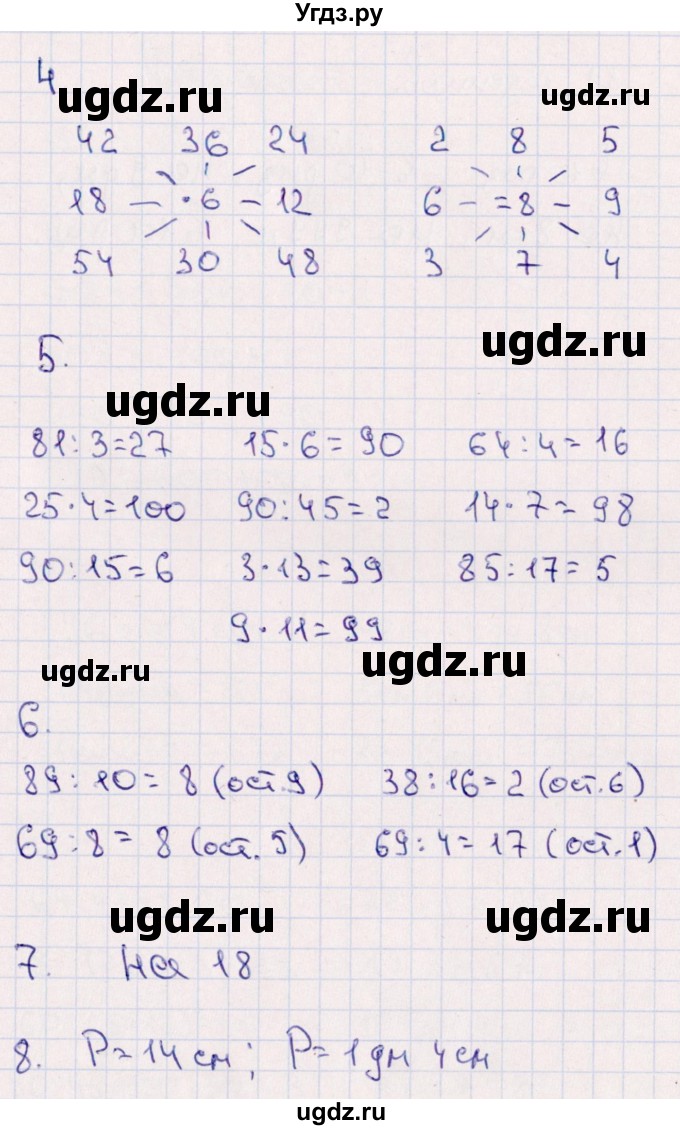 Угдз.ру
4
ugdz.ru ugdz.ru
42 36 24 2 8 5
18 — ·6 — 12 6 — =8 — 9
54 30 48 3 7 4
ugdz.ru
5.
ugdz.ru
81:3=27 15·6=90 64:4=16
25·4=100 90:45=2 14·7=98
90:15=6 3·13=39 85:17=5
9·11=99
ugdz.ru ugdz.ru
6.
89:10=8 (ост.9) 38:16=2 (ост.6)
69:8=8 (ост.5) 69:4=17 (ост.1)
ugdz.ru ugdz.ru
7. На 18
8. P=14 см; P=1 дм 4 см
ugdz.ru